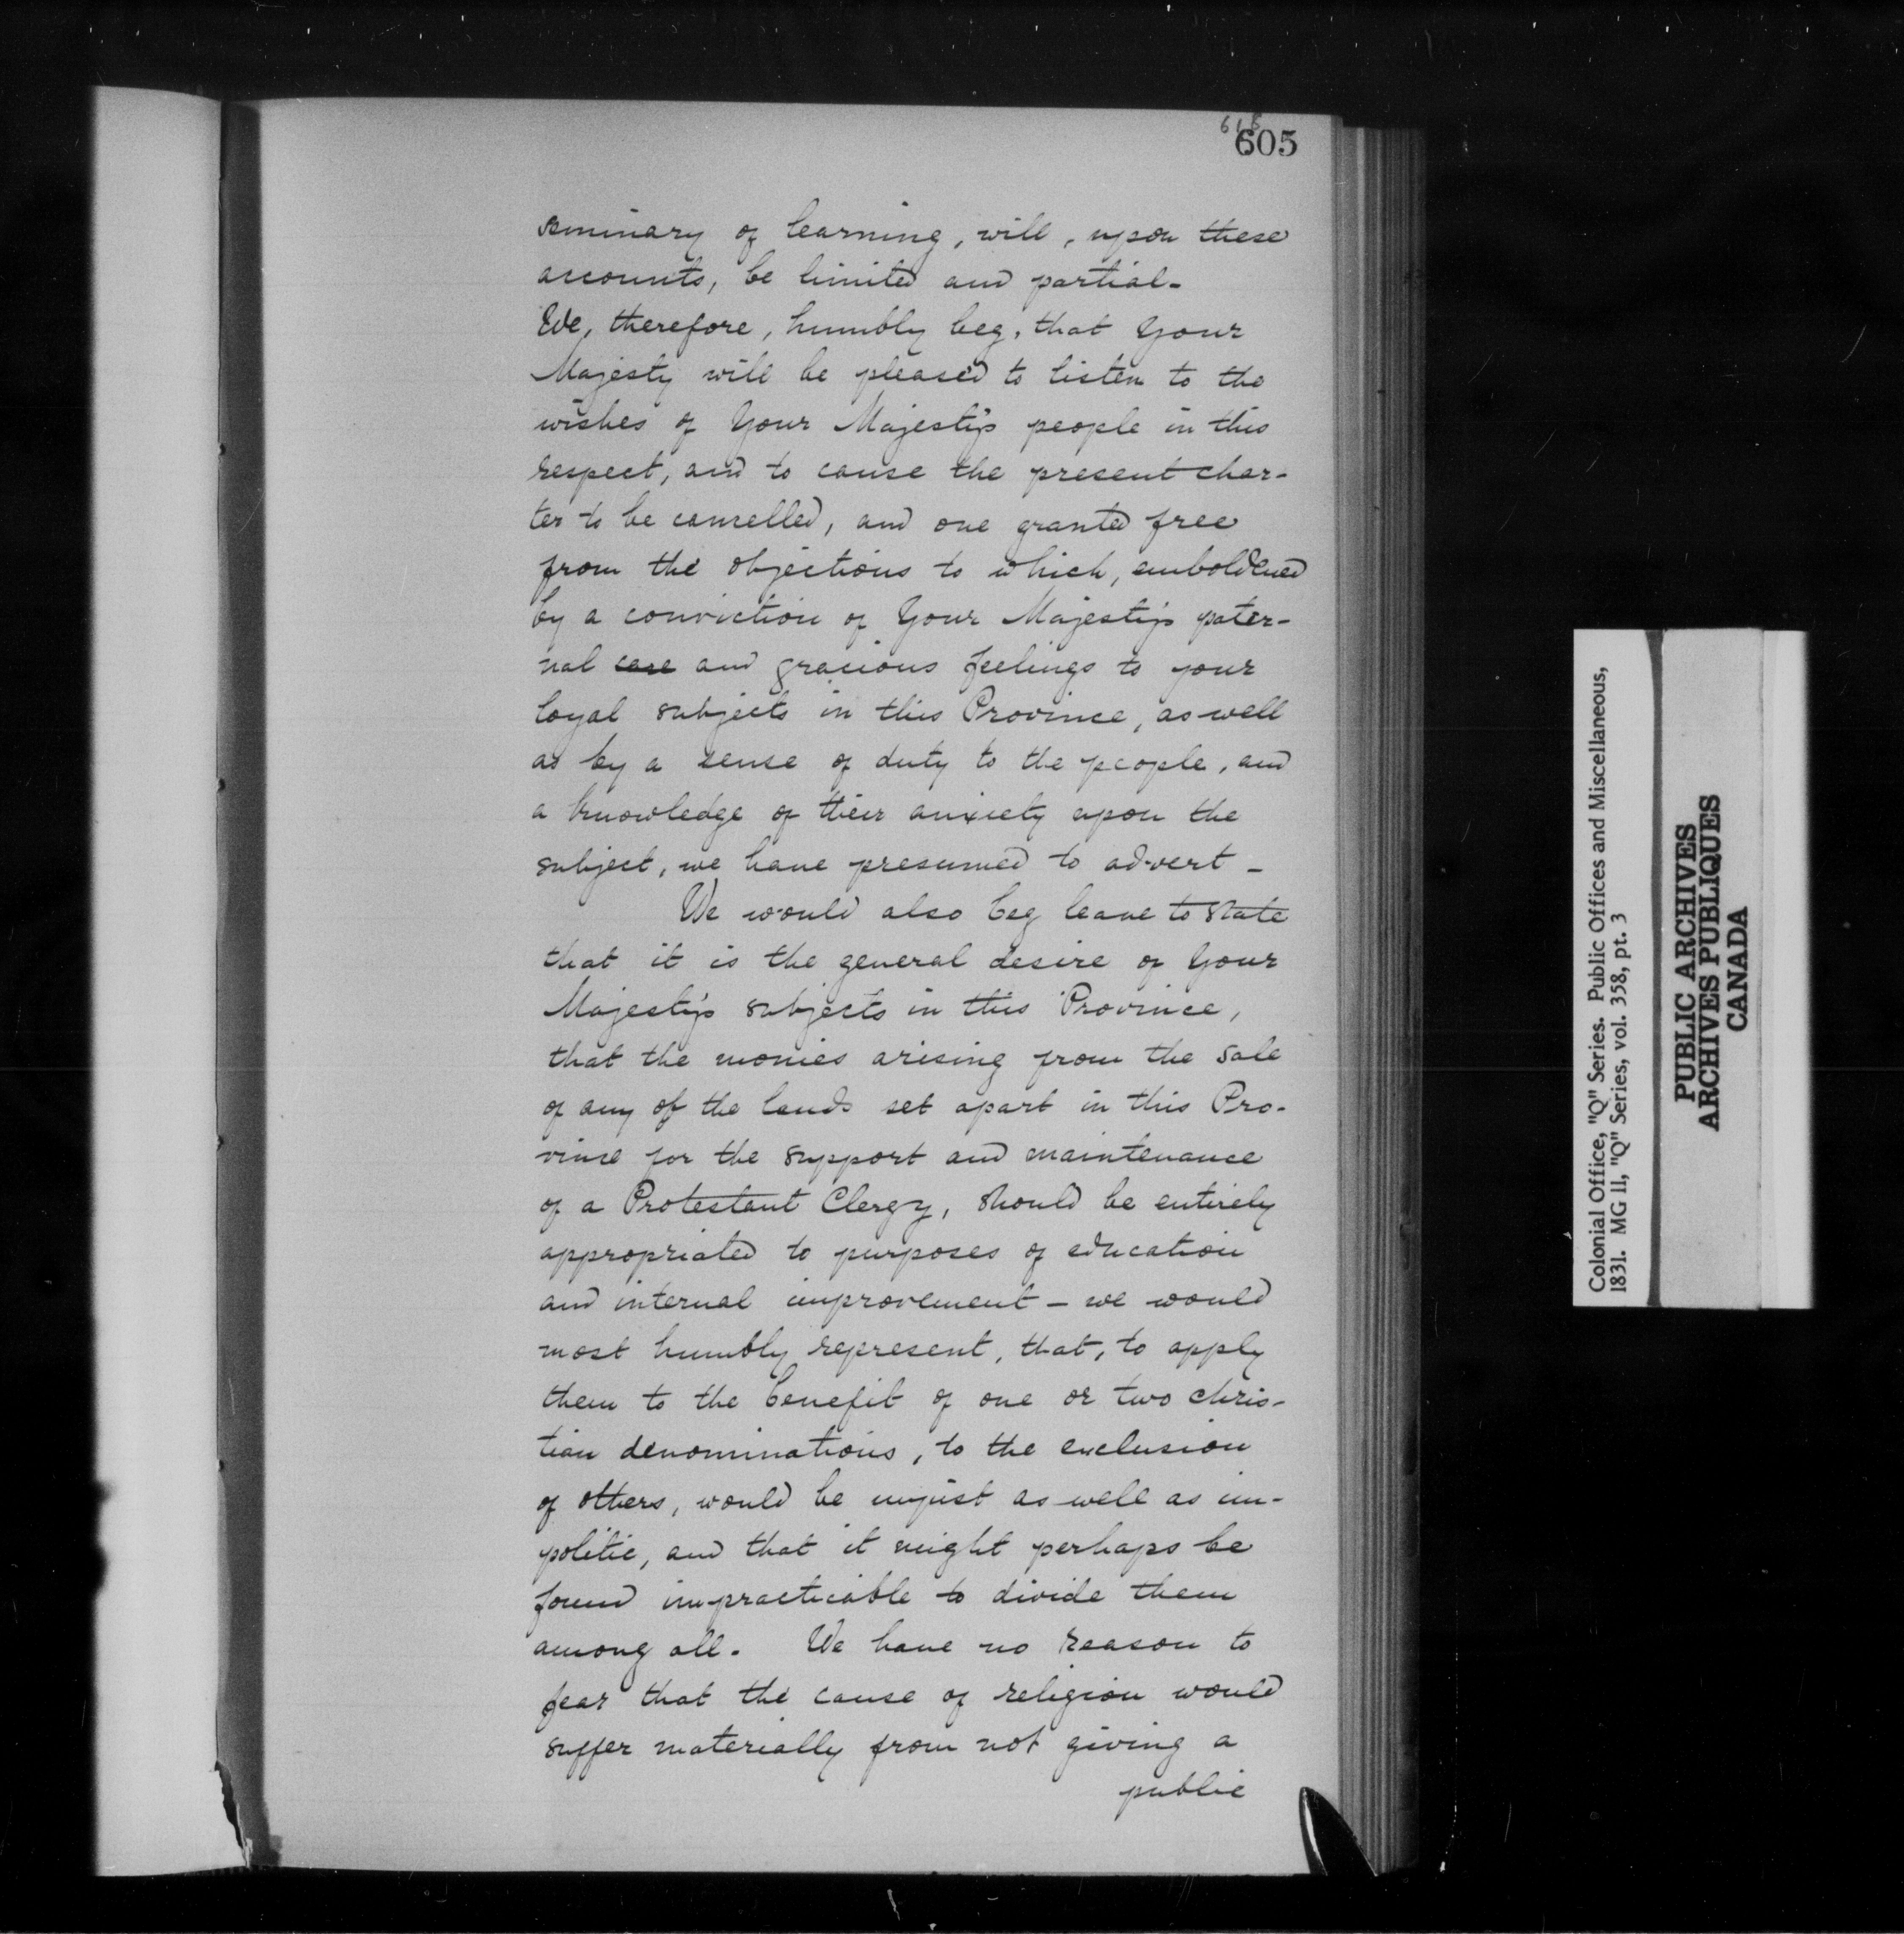 618
605
seminary of learning, will, upon these
accounts, be limited and partial.
We, therefore, humbly beg, that Your
Majesty will be pleased to listen to the
wishes of Your Majesty's people in this
respect, and to cause the present char-
ter to be cancelled, and one granted free
from the objections to which, emboldened
by a conviction of Your Majesty's pater-
nal care and gracious feelings to your
loyal subjects in this Province, as well
as by a sense of duty to the people, and
a knowledge of their anxiety upon the
subject, we have presumed to advert –
We would also beg leave to state
that it is the general desire of Your
Majesty's subjects in this Province,
that the monies arising from the sale
of any of the lands set apart in this Pro-
vince for the support and maintenance
of a Protestant Clergy, should be entirely
appropriated to purposes of education
and internal improvement – we would
most humbly represent, that, to apply
them to the benefit of one or two chris-
tian denominations, to the exclusion
of others, would be unjust as well as im-
politic, and that it might perhaps be
found impracticable to divide them
among all. We have no reason to
fear that the cause of religion would
suffer materially from not giving a
public
Colonial Office, "Q" Series. Public Offices and Miscellaneous,
1831. MG 11, "Q" Series, vol. 358, pt. 3
PUBLIC ARCHIVES
ARCHIVES PUBLIQUES
CANADA